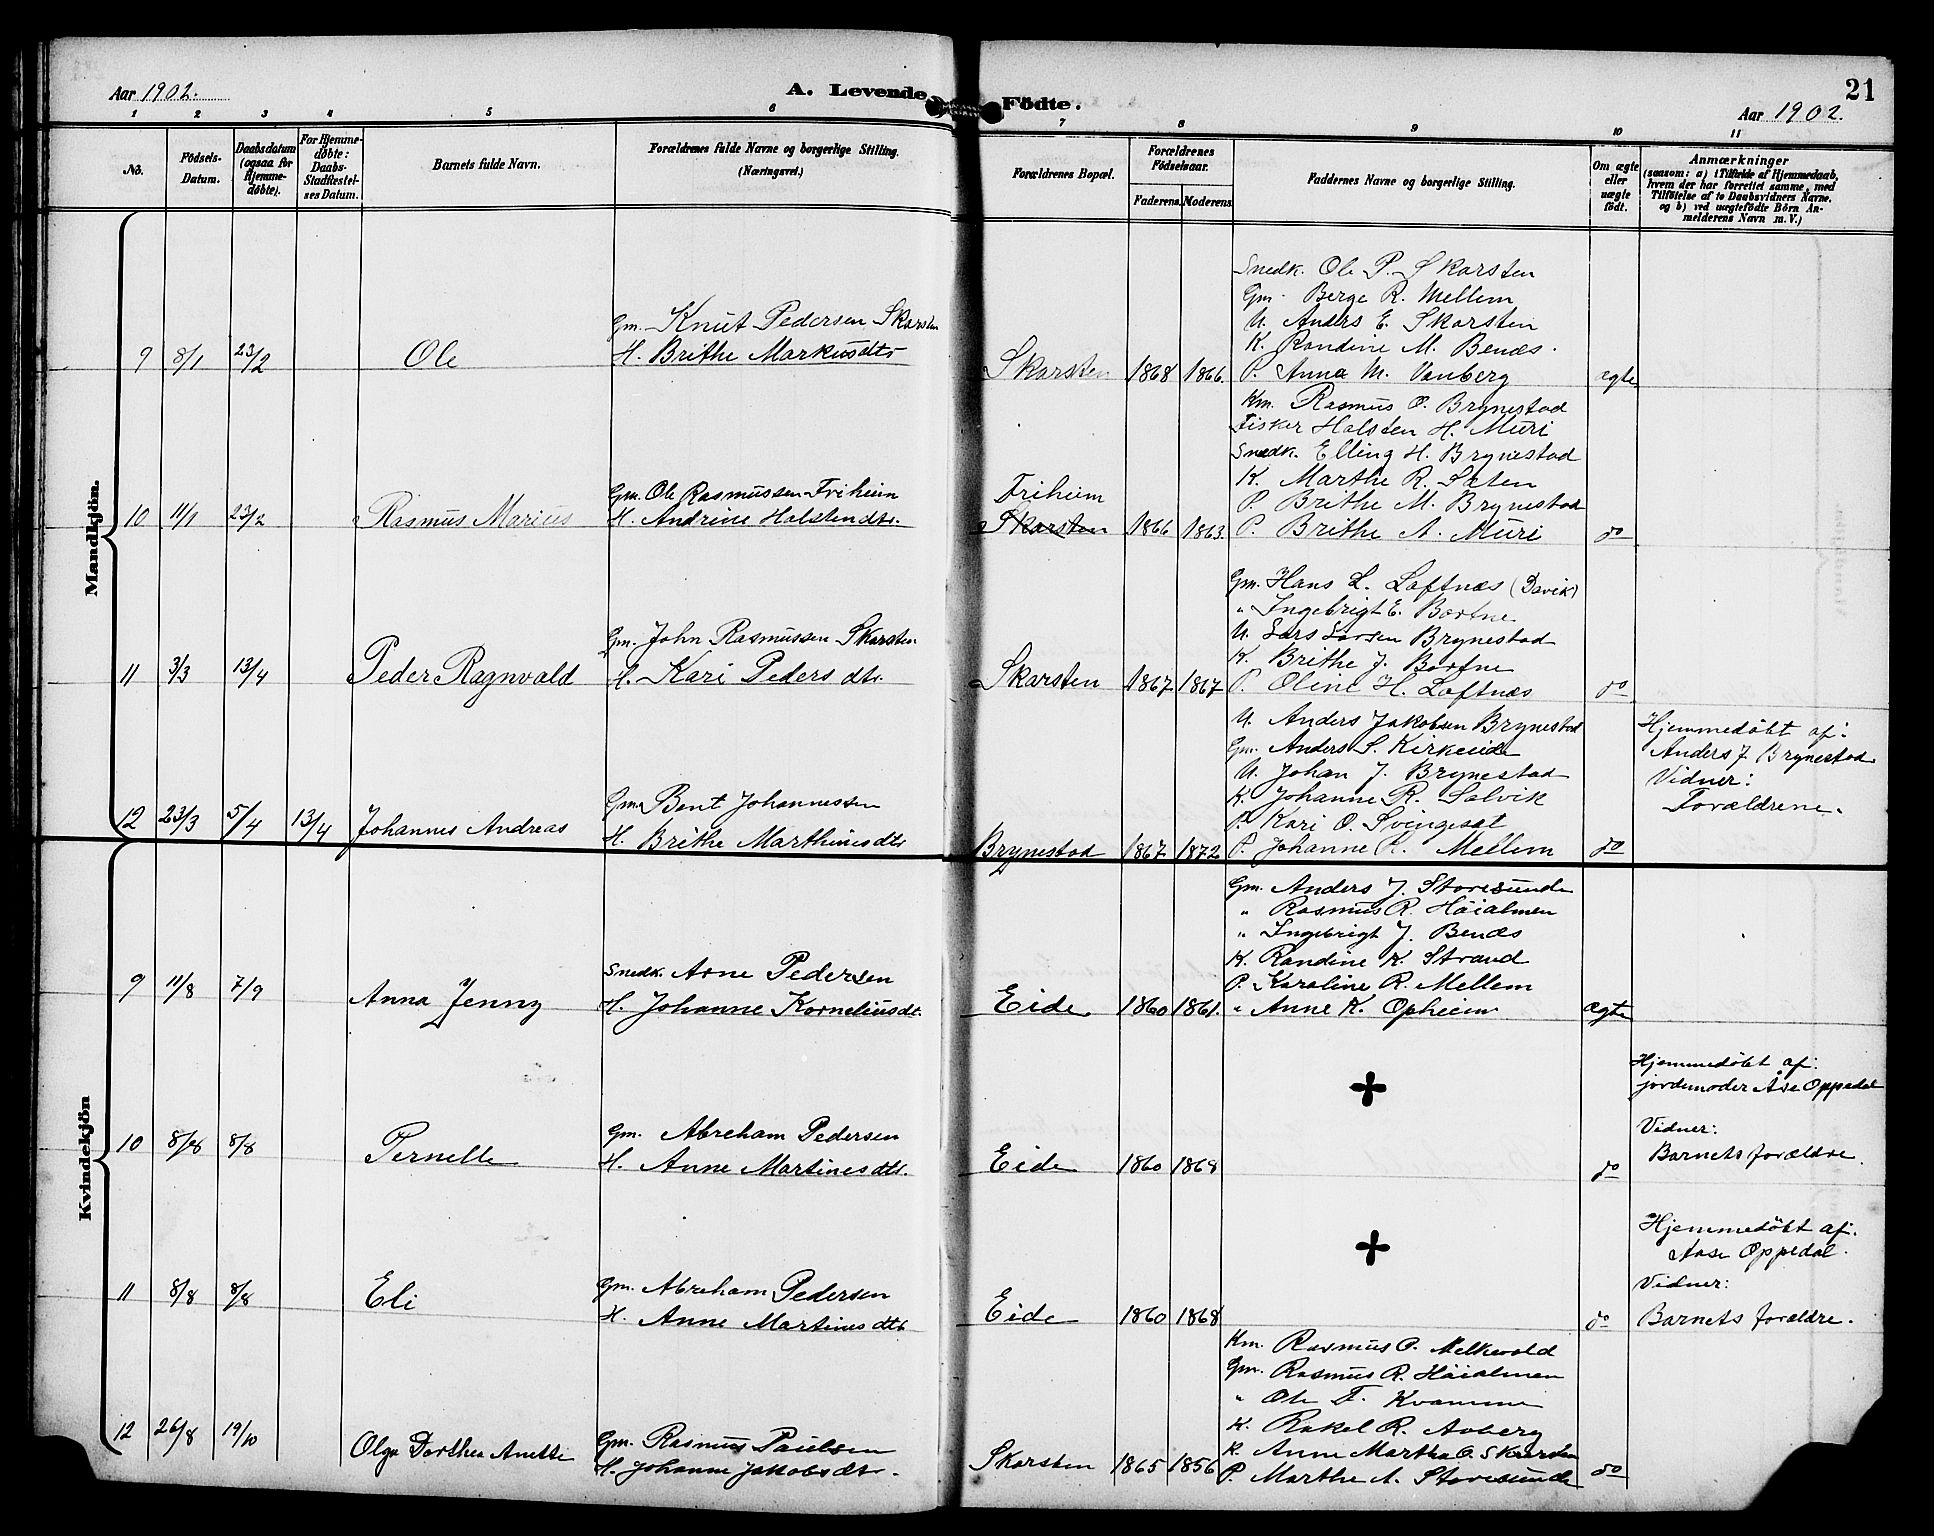 21
Aar 1902.
A. Levende Födte.
Aar 1902.
1 2 3 4 5 6 7 8 9 10 11
No.
Födsels-
Datum.
Daabsdatum
(ogsaa for
Hjemme-
döbte).
For Hjemme-
döbte:
Daabs-
Stadfæstel-
ses Datum.
Barnets fulde Navn.
Forældrenes fulde Navne og borgerlige Stilling.
(Næringsvei.)
Forældrenes Bopæl.
Forældrenes
Födselsaar.
Faderens. Moderens.
Faddernes Navne og borgerlige Stilling.
Om ægte
eller
uægte
födt.
Anmærkninger
(saasom: a) i Tilfælde af Hjemmedaab,
hvem der har forrettet samme, med
Tilföielse af to Daabsvidners Navne.
og b) ved uægtefödte Börn An-
melderens Navn m. V.)
Mandkjön.
9 8/1 23/2 Ole
Gm. Knut Pedersen Skarsten
H. Brithe Markusdtr
Skarsten 1868 1866.
Snedk. Ole P. Skarsten
Gm. Berge R. Mellem
U. Anders E. Skarsten
K. Randine M. Benæs.
P. Anna M. Vanberg
ægte
10 11/1 23/2 Rasmus Marius
Gm. Ole Rasmussen Friheim
H. Andrine Halstendtr.
Friheim
Skarsten 1866 1863.
Km. Rasmus O. Brynestad
Fisker Halsten H. Muri
Snedk. Elling H. Brynestad
K. Marthe R. Sæten
P. Brithe M. Brynestad
P. Brithe A. Muri
do
11 3/3 13/4 Peder Ragnvald
Gm. John Rasmussen Skarsten
H. Kari Peders dtr.
Skarsten 1867 1867
Gm. Hans L. Loftnæs (Davik)
" Ingebrigt E. Bortne
U. Lars Larsen Brynestad
K. Brithe J. Bortne
P. Oline H. Loftnæs
do
12 23/3 5/4 13/4 Johannes Andreas
Gm. Bent Johannessen
H. Brithe Marthinusdtr
Brynestad 1867 1872
U. Anders Jakobsen Brynestad
Gm. Anders S. Kirkeide
U. Johan J. Brynestad
K. Johanne R. Salvik
P. Kari O. Svingeset
P. Johanne R. Mellem
do
Hjemmedøbt af:
Anders J Brynestad
Vidner:
Forældrene.
Kvindekjön
9 11/8 7/9 Anna Jenny
Snedk. Arne Pedersen
H. Johanne Korneliusdt.
Eide 1860 1861.
Gm. Anders J. Storesunde
" Rasmus R. Høialmen
" Ingebrigt J. Benæs
K. Randine K. Strand
P. Karoline R. Mellem
" Anne K. Opheim
ægte
10 8/8 8/8 Pernelle
Gm. Abreham Pedersen
H. Anne Martinesdtr.
Eide 1860 1868
do
Hjemmedøbt af:
jordemoder Åse Oppedal
Vidner:
Barnets forældre.
11 8/8 8/8 Eli
Gm. Abreham Pedersen
H. Anne Martines dtr
Eide 1860 1868
do
Hjemmedøbt af:
Aase Oppedal.
Vidner:
Barnets forældre.
12 26/8 19/10 Olga Dorthea Anette
Gm. Rasmus Paulsen
H. Johanne Jakobsdtr.
Skarsten 1865 1856
Km. Rasmus P. Melkevold
Gm. Rasmus R. Høialmen
" Ole F. Kvamme
K. Rakel R. Aaberg
K. Anne Martha O. Skarsten
P. Marthe A. Storesunde
do